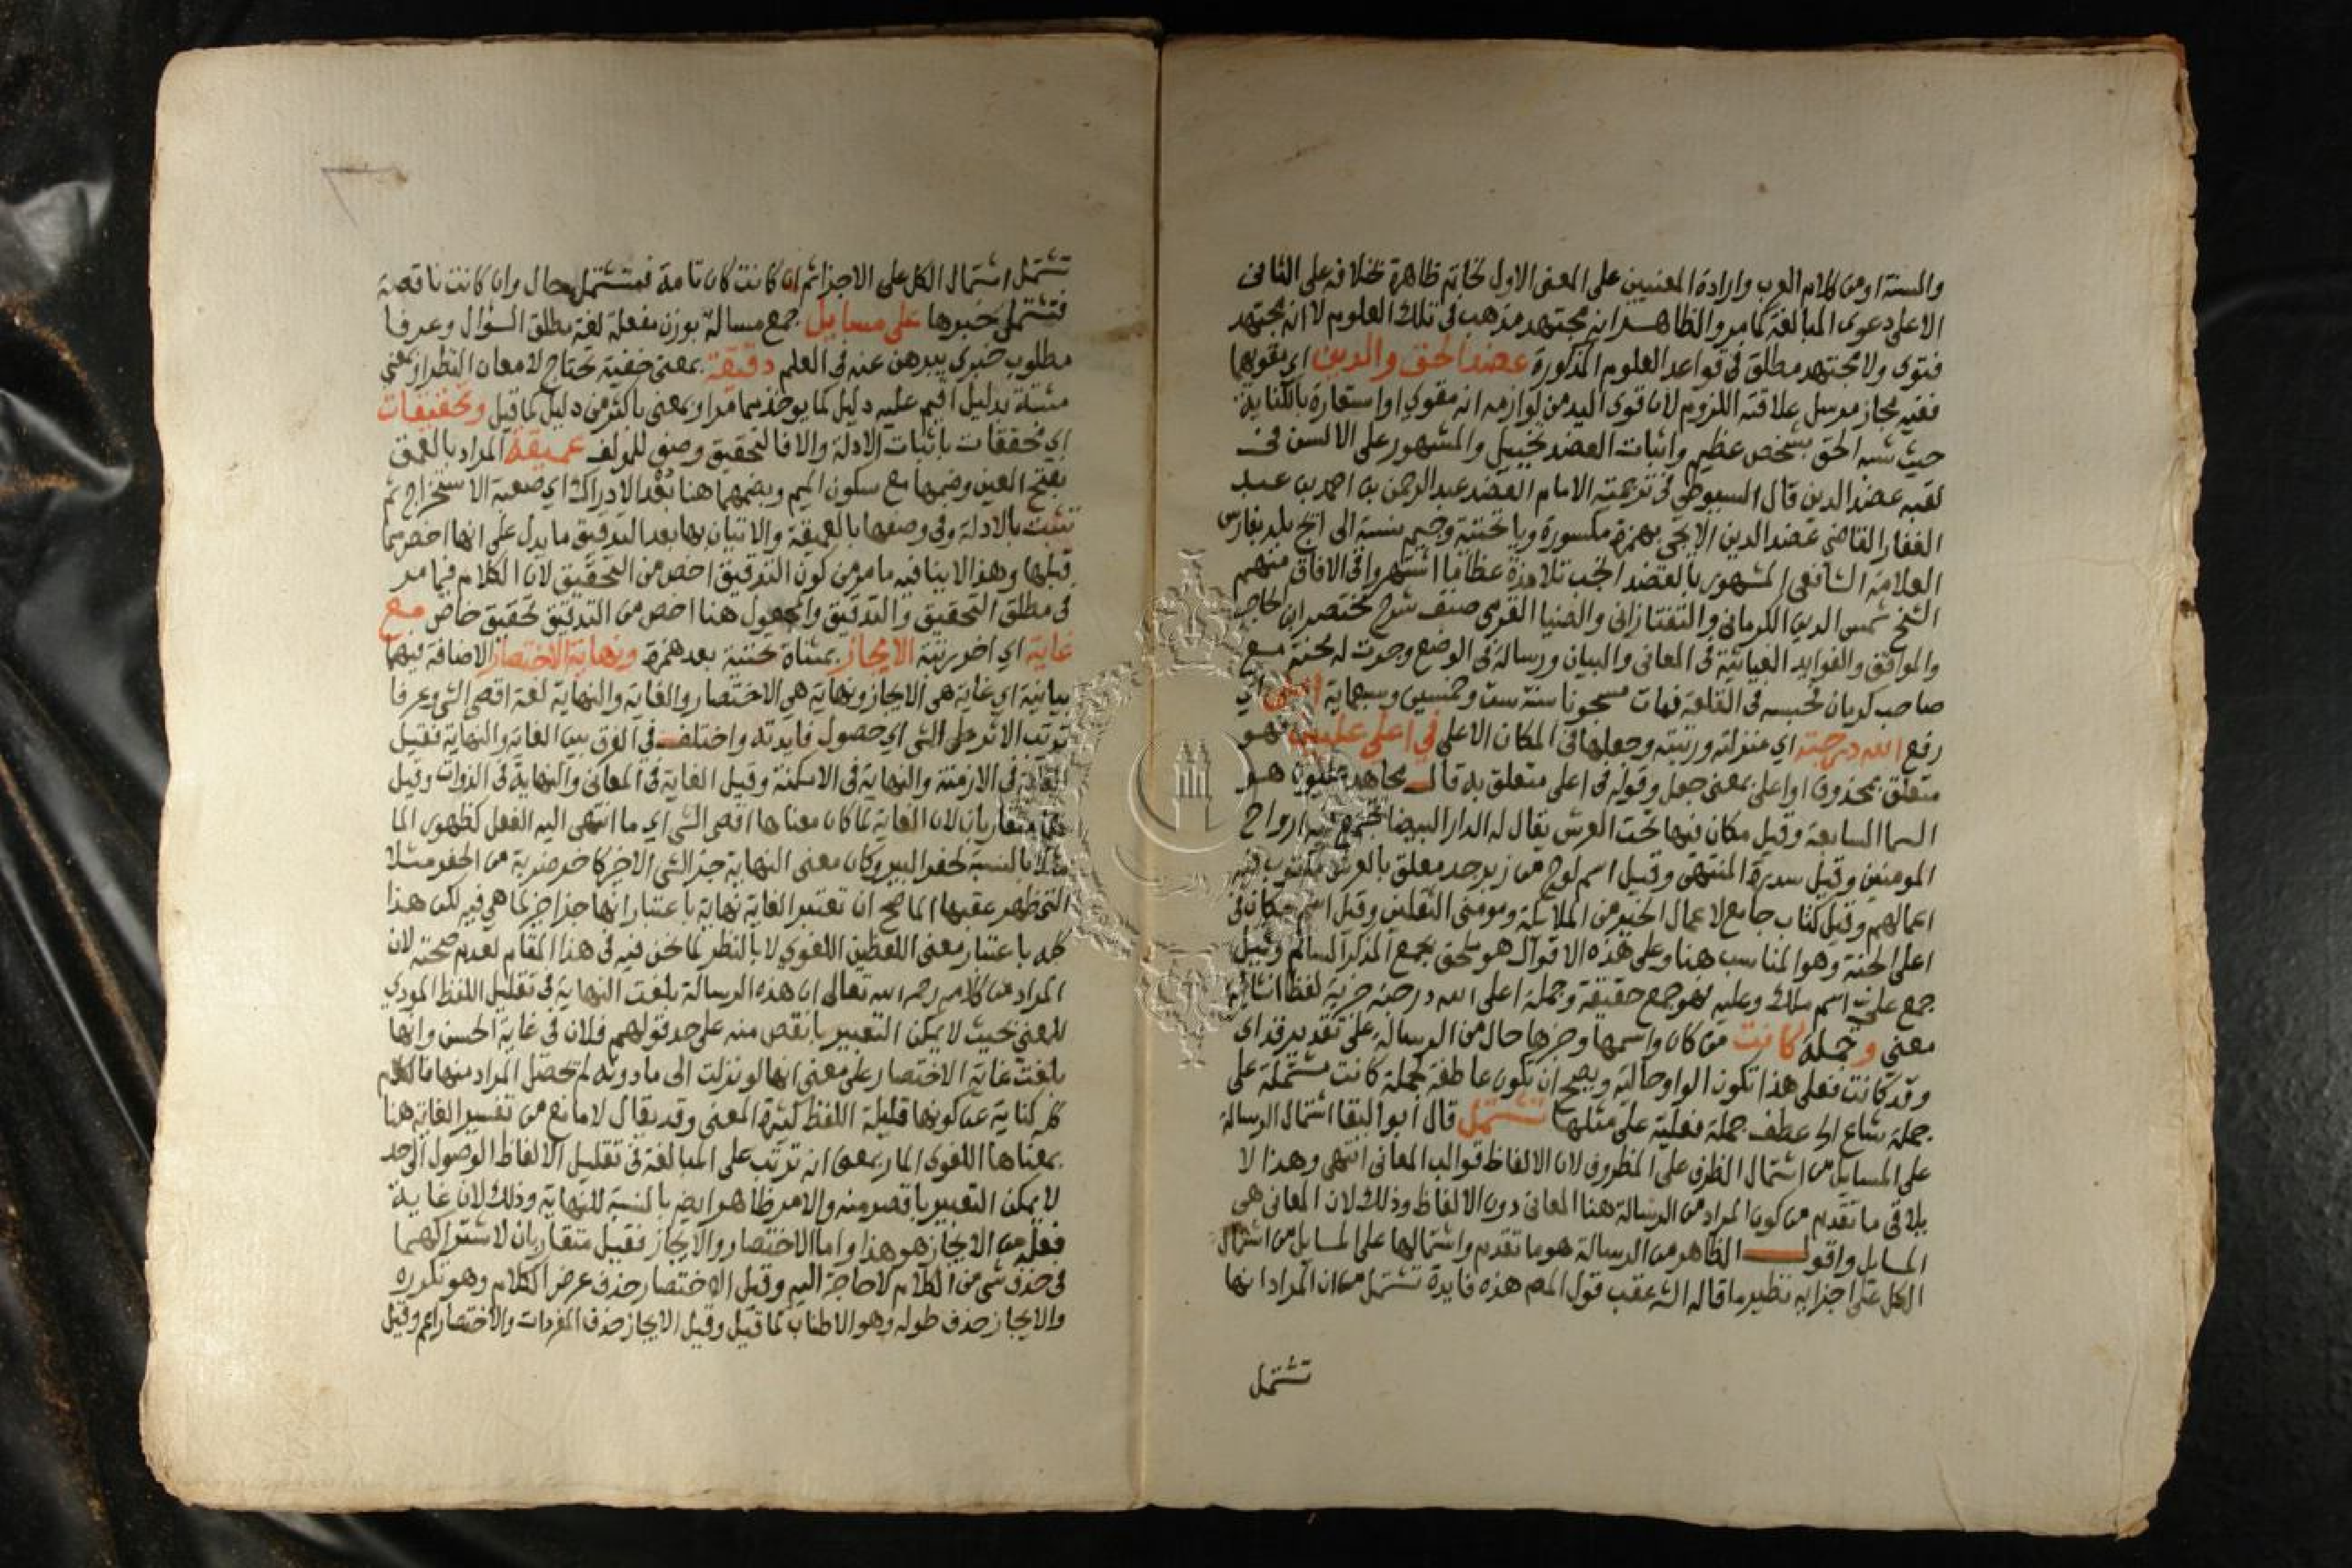 والسنة او من كلام العرب وارادة المعنيين على المعنى الاول لخاتم ظاهرة بخلافه على الثاني
الا على دعوى المبالغة كما مر والظاهر انه مجتهد مذهب في تلك العلوم لا انه مجتهد
فتوى ولا مجتهد مطلق في قواعد العلوم المذكورة عضد الحق والدين اي مقويهما
ففيه مجاز مرسل علاقته اللزوم لان قوى اليد من لوازمه انه مقوي او استعارة بالكناية
حيث شبه الحق بشخص عظيم واثبات العضد تخييل والمشهور على الالسن في
لقبه عضد الدين قال السيوطي في ترجمته الامام العضد عبد الرحمن بن احمد بن عبد
الغفار القاضي عضد الدين الايجي بهمزة مكسورة ويا تحتية وجيم نسبة الى ايج بلد بفارس
العلامة الشافعي المشهور بالعضد انجب تلامذة عظاما اشتهروا في الافاق منهم
الشيخ شمس الدين الكرماني والتفتازاني والضيا القرمي صنف شرح مختصر ابن الحاجب
والمواقف والفوايد الغياثية في المعاني والبيان ورسالة في الوضع وجرت له محنة مع
صاحب كرمان فحبسه في القلعة فمات مسجونا سنة ست وخمسين وسبعماية اعلى اي
رفع الله درجته اي منزلته ورتبته وجعلها في المكان الاعلى في اعلى عليين فهو
متعلق بمحذوف او اعلى بمعنى جعل وقوله في اعلى متعلق به قال مجاهد عليون هو
السما السابعة وقيل مكان فيها تحت العرش يقال له الدار البيضا تجتمع فيه ارواح
المومنين وقيل سدرة المنتهى وقيل اسم لوح من زبرجد معلق بالعرش مكتوب فيه
اعمالهم وقيل كتاب جامع لاعمال الخير من الملايكة ومومني الثقلين وقيل اسم مكان في
اعلى الجنة وهو المناسب هنا وعلى هذه الاقوال هو ملحق بجمع المذكر السالم وقيل
جمع علي اسم ملك وعليه فهو جمع حقيقة وجملة اعلى الله درجته خبرية لفظا انشائية
معنى وجملة كانت من كان واسمها وخبرها حال من الرسالة على تقدير قد اي
وقد كانت فعلى هذا تكون الواو حالية ويصح ان يكون عاطفة لجملة كانت مشتملة على
جملة شاع اي عطف جملة فعلية على مثلها تشتمل قال ابو البقا اشتمال الرسالة
على المسايل من اشتمال الظرف على المظروف لان الالفاظ قوالب المعاني انتهى وهذا لا
يلاقي ما تقدم من كون المراد من الرسالة هنا المعاني دون الالفاظ وذلك لان المعاني هي
المسايل واقول الظاهر من الرسالة هو ما تقدم واشتمالها على المسايل من اشتمال
الكل على اجزايه نظير ما قاله الشه عقب قول المصم هذه فايدة تشتمل من ان المراد انها
تشتمل
تشتمل اشتمال الكل على الاجزا ثم ان كانت كان تامة فتشتمل حال وان كانت ناقصة
فتشتمل خبرها على مسايل جمع مسالة بوزن مفعلة لغة مطلق السؤال وعرفا
مطلوب خبري يبرهن عنه في العلم دقيقة بمعنى خفية تحتاج لامعان النظر او بمعنى
مثبتة بدليل اقيم عليه دليل كما يوخذ مما مر او بمعنى باكثر من دليل كما قيل وتحقيقات
اي محققات باثبات الادلة والا فالتحقيق وصف للمولف عميقة المراد بالعمق
بفتح العين وضمها مع سكون الميم وبضمهما هنا بعد الادراك اي صعبة الاستخراج ثم
تثبت بالادلة وفي وصفها بالعميقة والاتيان بها بعد التدقيق ما يدل على انها اخص مما
قبلها وهذا لا ينافيه ما مر من كون التدقيق اخص من التحقيق لان الكلام فيما مر
في مطلق التحقيق والتدقيق والمجعول هنا اخص من التدقيق تحقيق خاص مع
غاية اي اخر رتبة الايجاز بمثناة تحتية بعد همزة ونهاية الاختصار الاضافة فيهما
بيانية اي غاية هي الايجاز ونهاية هي الاختصار والغاية والنهاية لغة اقصى الشي وعرفا
ترتب الاثر على الشي اي حصول فايدته واختلف في الفرق بين الغاية والنهاية فقيل
الغاية في الازمنة والنهاية في الامكنة وقيل الغاية في المعاني والنهاية في الذوات وقيل
هما متقاربان لان الغاية لما كان معناها اقصى الشي اي ما انتهى اليه الفعل كظهور الما
مثلا بالنسبة لحفر البير وكان معنى النهاية جزا الشي الاخر كاخر ضربة من الحفر مثلا
التي ظهر عقبها الما صح ان تعتبر الغاية نهاية باعتبار انها جزا خر لما هي فيه لكن هذا
كله باعتبار معنى اللفظين اللغوي لا بالنظر لما نحن فيه في هذا المقام لعدم صحته لان
المراد من كلامه رحمه الله تعالى ان هذه الرسالة بلغت النهاية في تقليل اللفظ المودي
للمعنى بحيث لا يمكن التعبير بانقص منه على حد قولهم فلان في غاية الحسن وانها
بلغت غاية الاختصار على معنى انها لو نزلت الى ما دونه لم تحصل المراد منها فالكلام
كله كناية عن كونها قليلة اللفظ كثيرة المعنى وقد يقال لا مانع من تفسير الغاية هنا
بمعناها اللغوي المار بمعنى انه ترتب على المبالغة في تقليل الالفاظ الوصول الى حد
لا يمكن التعبير باقصر منه والامر ظاهر ايضا بالنسبة للنهاية وذلك لان غاية
فعله من الايجاز هو هذا واما الاختصار والايجاز فقيل متقاربان لاشتراكهما
في حذف شي من الكلام لا حاجز اليه وقيل الاختصار حذف عرض الكلام وهو تكرره
والايجاز حذف طوله وهو الاطناب كما قيل وقيل الايجاز حذف المفردات والاختصار اعم وقيل